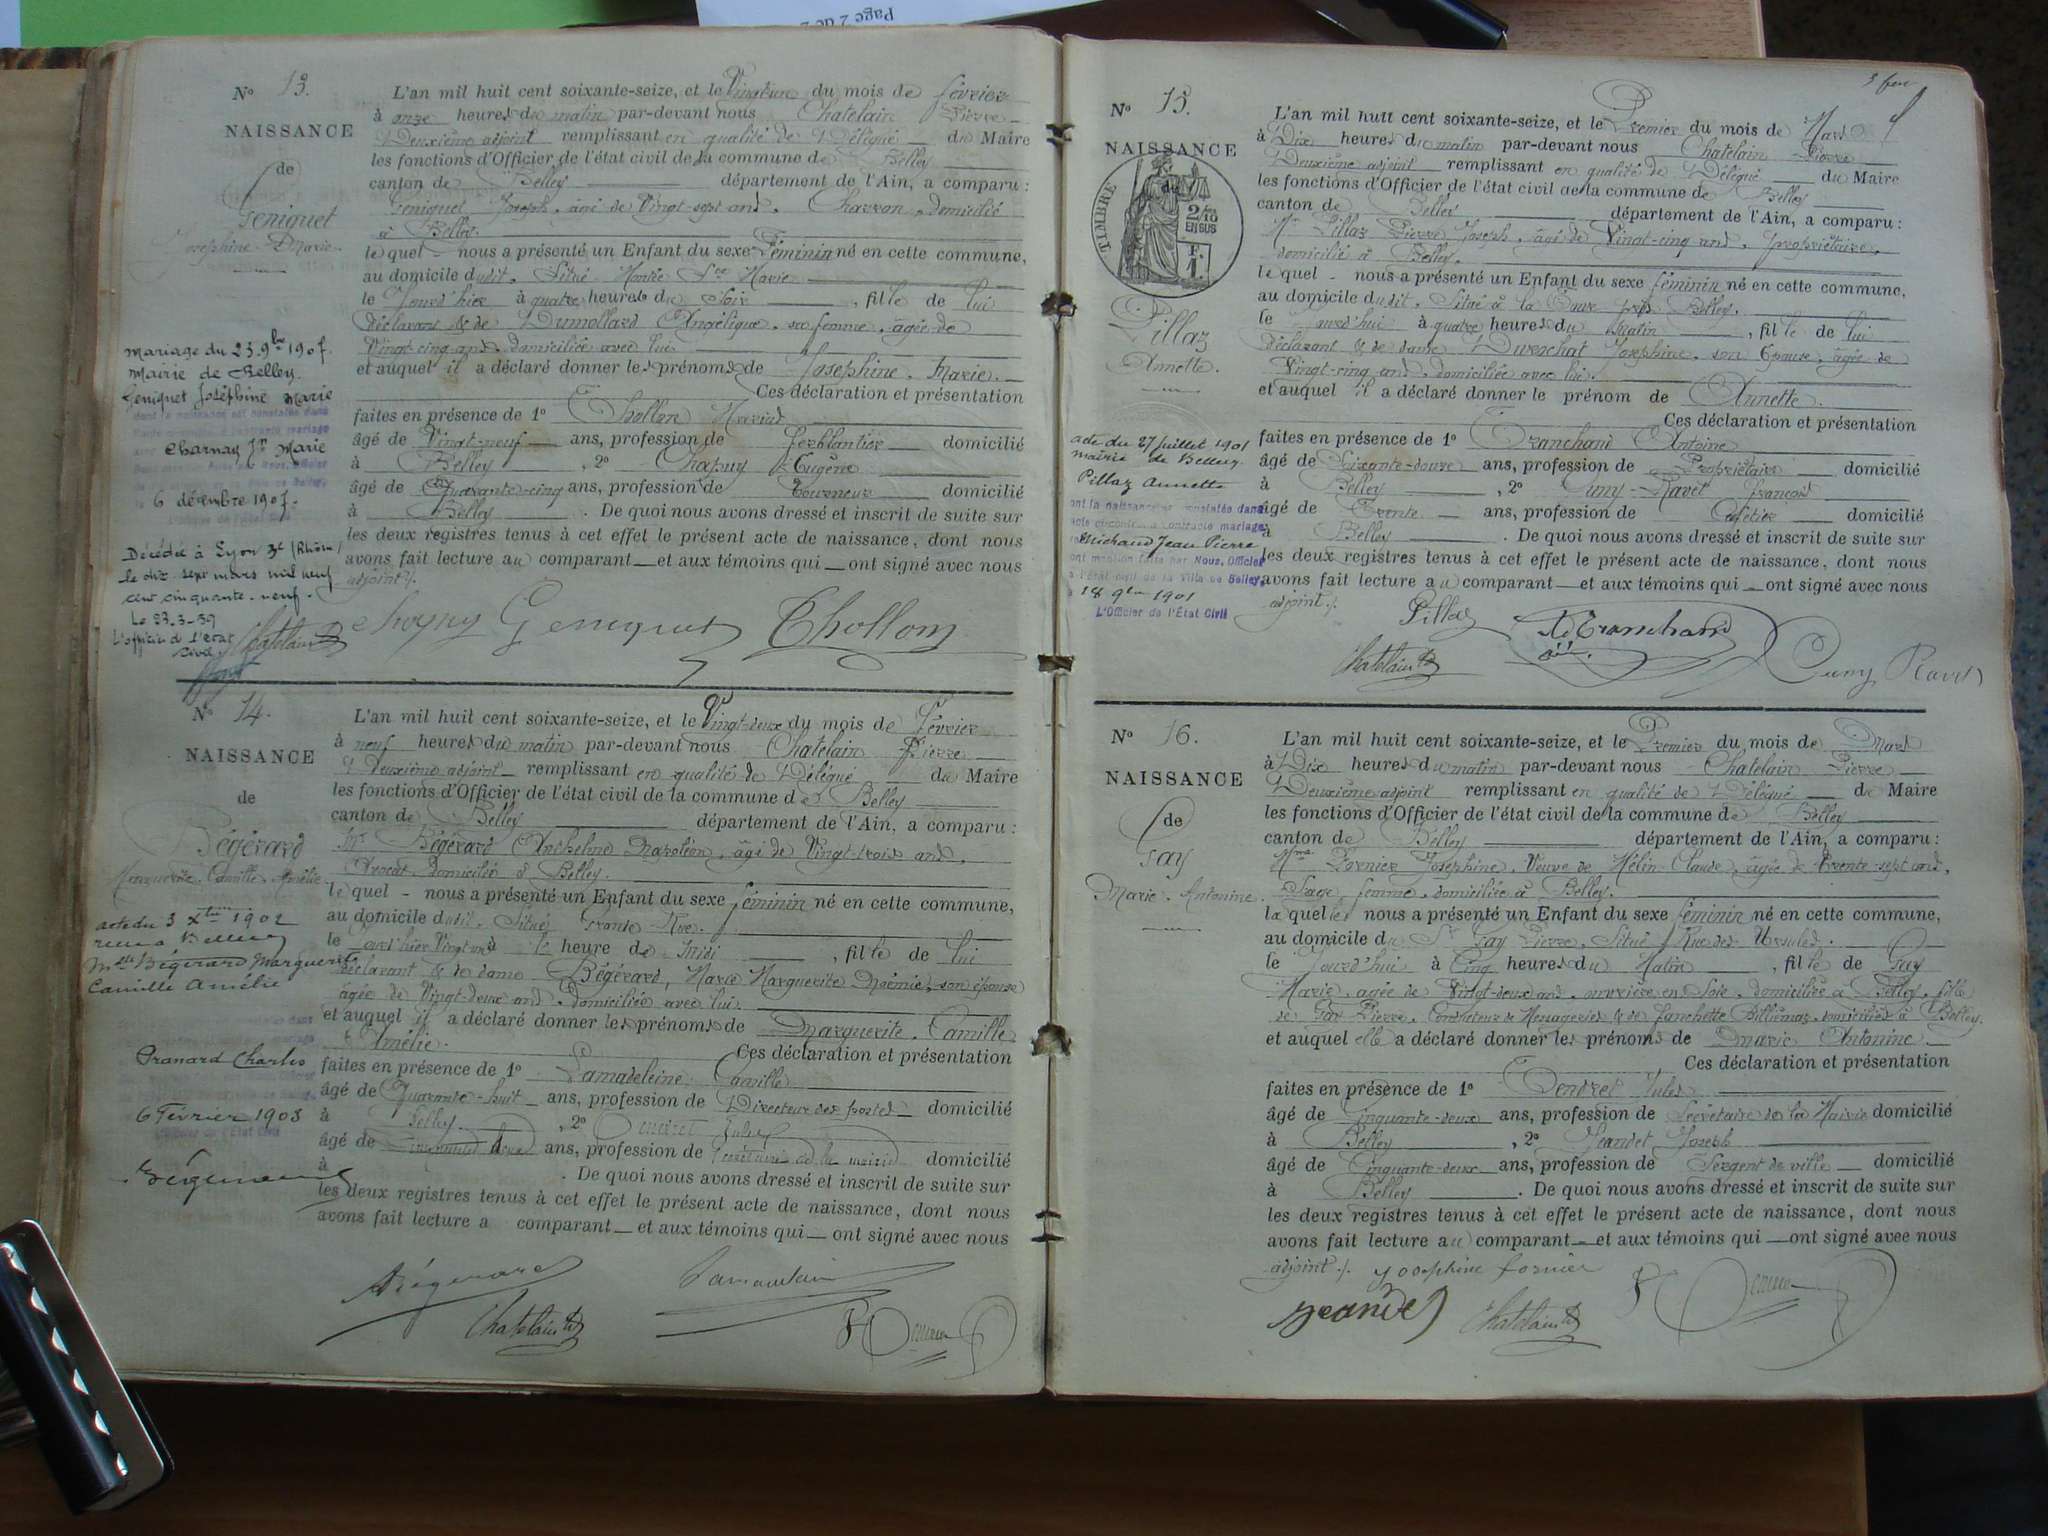 Page 2 de 2
N° 13.
NAISSANCE
de
Geniquet
Josephine Marie.
L'an mil huit cent soixante-seize, et le Vingt un du mois de février
à onze heures du matin par-devant nous Chatelain Pierre
Deuxième adjoint remplissant en qualité de Délégué du Maire
les fonctions d'Officier de l'état civil de la commune de Belley
canton de Belley département de l'Ain, a comparu :
Geniquet Joseph, âgé de Vingt-sept ans, Charron, domicilié
à Belley.
le quel nous a présenté un Enfant du sexe Féminin né en cette commune,
au domicile dudit, Situé Montée Ste Marie
le Jourd'hier à quatre heures du Soir, fille de lui
déclarant & de Dumollard Angélique, sa femme, âgée de
Vingt-cinq ans, domiciliée avec lui
et auquel il a déclaré donner les prénoms de Josephine, Marie.
Ces déclaration et présentation
faites en présence de 1° Thollon Marius
âgé de Vingt-neuf ans, profession de Ferblantier domicilié
à Belley, 2° Chapuy Eugène
âgé de Quarante-cinq ans, profession de Tourneur domicilié
à Belley. De quoi nous avons dressé et inscrit de suite sur
les deux registres tenus à cet effet le présent acte de naissance, dont nous
avons fait lecture au comparant et aux témoins qui ont signé avec nous
adjoint.
Mariage du 23 9bre 1907.
Mairie de Belley
Geniquet Joséphine Marie
dont la naissance est constatée dans
Charnay Jn Marie
6 décembre 1907.
Décédée à Lyon 3e (Rhône)
le dix sept mars mil neuf
cent cinquante-neuf.
Le 23-3-59
L'officier de l'état
civil.
Chatelain Geniquet Thollon
N° 14.
NAISSANCE
de
Bégérard
Marguerite Camille Amélie
L'an mil huit cent soixante-seize, et le Vingt-deux du mois de Février
à neuf heures du matin par-devant nous Chatelain Pierre
Deuxième adjoint remplissant en qualité de Délégué du Maire
les fonctions d'Officier de l'état civil de la commune de Belley
canton de Belley département de l'Ain, a comparu :
Mr Bégérard Anthelme Napoléon, âgé de Vingt-trois ans,
Avocat, domicilié à Belley.
le quel nous a présenté un Enfant du sexe féminin né en cette commune,
au domicile dudit, Situé Grande Rue.
le à heure de midi, fille de lui
déclarant & de dame Bégérard, Marie Marguerite Noémie, son épouse
âgée de Vingt-deux ans, domiciliée avec lui.
et auquel il a déclaré donner les prénoms de Marguerite, Camille
& Amélie.
Ces déclaration et présentation
faites en présence de 1° Lamadeleine Camille
âgé de Quarante-huit ans, profession de Directeur des postes domicilié
à Belley, 2° Tendret Jules
âgé de ans, profession de secrétaire de la mairie domicilié
à . De quoi nous avons dressé et inscrit de suite sur
les deux registres tenus à cet effet le présent acte de naissance, dont nous
avons fait lecture a comparant et aux témoins qui ont signé avec nous
acte du 3 Xbre 1902
Mlle Bégérard Marguerite
Camille Amélie
Pranard Charles
6 Février 1903
L'Officier de l'État Civil
Bégérard
Chatelain
3 feu
N° 15.
NAISSANCE
de
TIMBRE
2/10
EN SUS
F.
1.
Pillaz
Annette.
L'an mil huit cent soixante-seize, et le Premier du mois de Mars
à Dix heures du matin par-devant nous Chatelain Pierre
Deuxième adjoint remplissant en qualité de Délégué du Maire
les fonctions d'Officier de l'état civil de la commune de Belley
canton de Belley département de l'Ain, a comparu :
Mr Pillaz Pierre Joseph, âgé de Vingt-cinq ans, Propriétaire,
domicilié à Belley.
le quel nous a présenté un Enfant du sexe féminin né en cette commune,
au domicile dudit, Situé à la près Belley.
le jourd'hui à quatre heures du Matin, fille de lui
déclarant & de dame Duverchat Josephine, son Epouse, âgée de
Vingt-cinq ans, domiciliée avec lui.
et auquel il a déclaré donner le prénom de Annette.
Ces déclaration et présentation
faites en présence de 1° Tranchand Antoine
âgé de Soixante-douze ans, profession de Propriétaire domicilié
à Belley, 2° Cuny-Ravet François
âgé de Trente ans, profession de Cafetier domicilié
à Belley. De quoi nous avons dressé et inscrit de suite sur
les deux registres tenus à cet effet le présent acte de naissance, dont nous
avons fait lecture au comparant et aux témoins qui ont signé avec nous
adjoint.
acte du 27 Juillet 1901
mairie de Belley
Pillaz Annette
dont la naissance est constatée dans
l'acte ci-contre a contracté mariage
Michaud Jean Pierre
dont mention faite par Nous, Officier
de l'état civil de la Ville de Belley,
18 9bre 1901
L'Officier de l'État Civil
Pillaz Tranchand
Chatelain Cuny Ravet
N° 16.
NAISSANCE
de
Gay
Marie Antonine.
L'an mil huit cent soixante-seize, et le Premier du mois de Mars
à Dix heures du matin par-devant nous Chatelain Pierre
Deuxième adjoint remplissant en qualité de Délégué du Maire
les fonctions d'Officier de l'état civil de la commune de Belley
canton de Belley département de l'Ain, a comparu :
Mme Fornier Josephine, Veuve de Mélin Claude, âgée de trente-sept ans,
Sage femme, domiciliée à Belley.
la quelle nous a présenté un Enfant du sexe féminin né en cette commune,
au domicile du Sr Gay Pierre, Situé Rue des Ursules.
le Jourd'hui à Cinq heures du Matin, fille de Gay
Marie, âgée de Vingt-deux ans, ouvrière en Soie, domiciliée à Belley, fille
de Gay Pierre, Conducteur de Messageries & de Fanchette Billiémaz, domiciliés à Belley.
et auquel elle a déclaré donner les prénoms de Marie Antonine.
Ces déclaration et présentation
faites en présence de 1° Tendret Jules
âgé de Cinquante-deux ans, profession de Secrétaire de la Mairie domicilié
à Belley, 2° Jeandet Joseph
âgé de Cinquante-deux ans, profession de Sergent de ville domicilié
à Belley. De quoi nous avons dressé et inscrit de suite sur
les deux registres tenus à cet effet le présent acte de naissance, dont nous
avons fait lecture au comparant et aux témoins qui ont signé avec nous
adjoint. Josephine fornier
Jeandet Chatelain